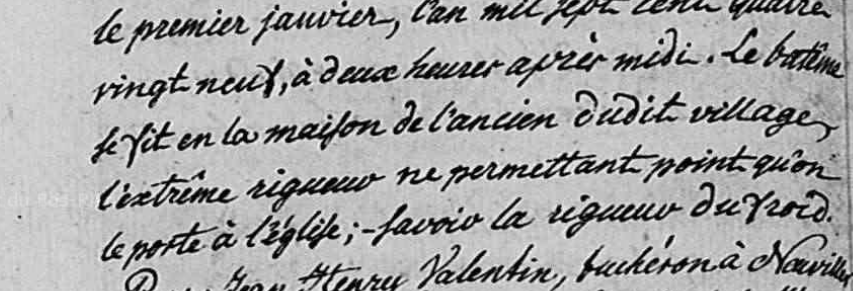 le premier janvier, l'an mil sept cent quatre
vingt neuf, à deux heures après midi. Le batême
se fit en la maison de l'ancien dudit village,
l'éxtrême rigueur ne permettant point qu'on
le porte à l'église; - savoir la rigueur du froid.
Jean Henry Valentin, buchéron à Neuviller